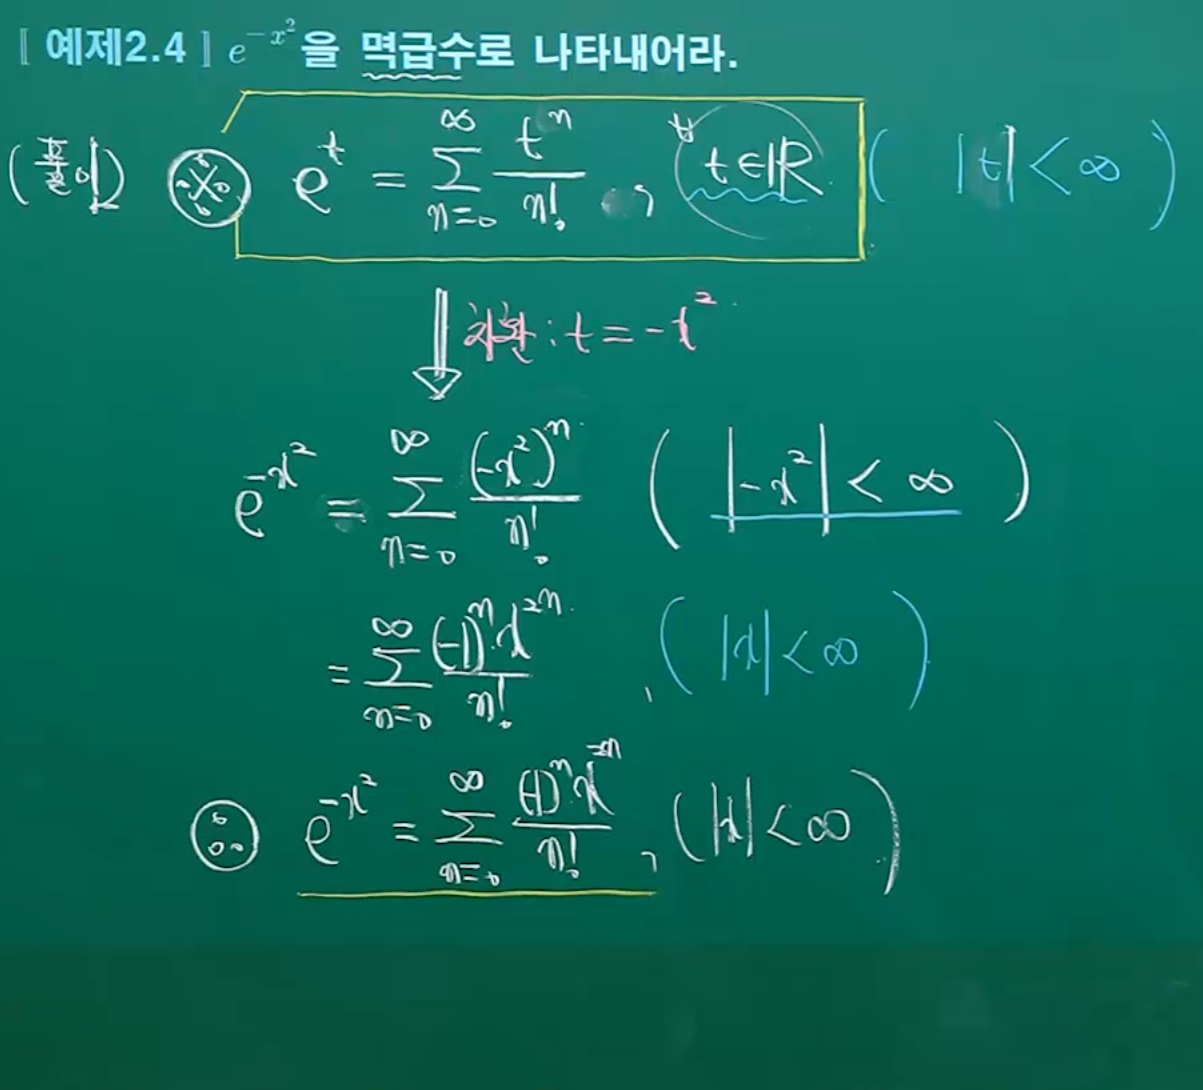 [예제2.4] e^{-x^2}을 멱급수로 나타내어라.
(풀이) ※ e^t = \sum_{n=0}^{∞} \frac{t^n}{n!}, ∀t∈ℝ ( |t| < ∞ )
⇓ 치환 : t = -x^2
e^{-x^2} = \sum_{n=0}^{∞} \frac{(-x^2)^n}{n!} ( |-x^2| < ∞ )
= \sum_{n=0}^{∞} \frac{(-1)^n x^{2n}}{n!}, ( |x| < ∞ )
∴ e^{-x^2} = \sum_{n=0}^{∞} \frac{(-1)^n x^{2n}}{n!}, ( |x| < ∞ )